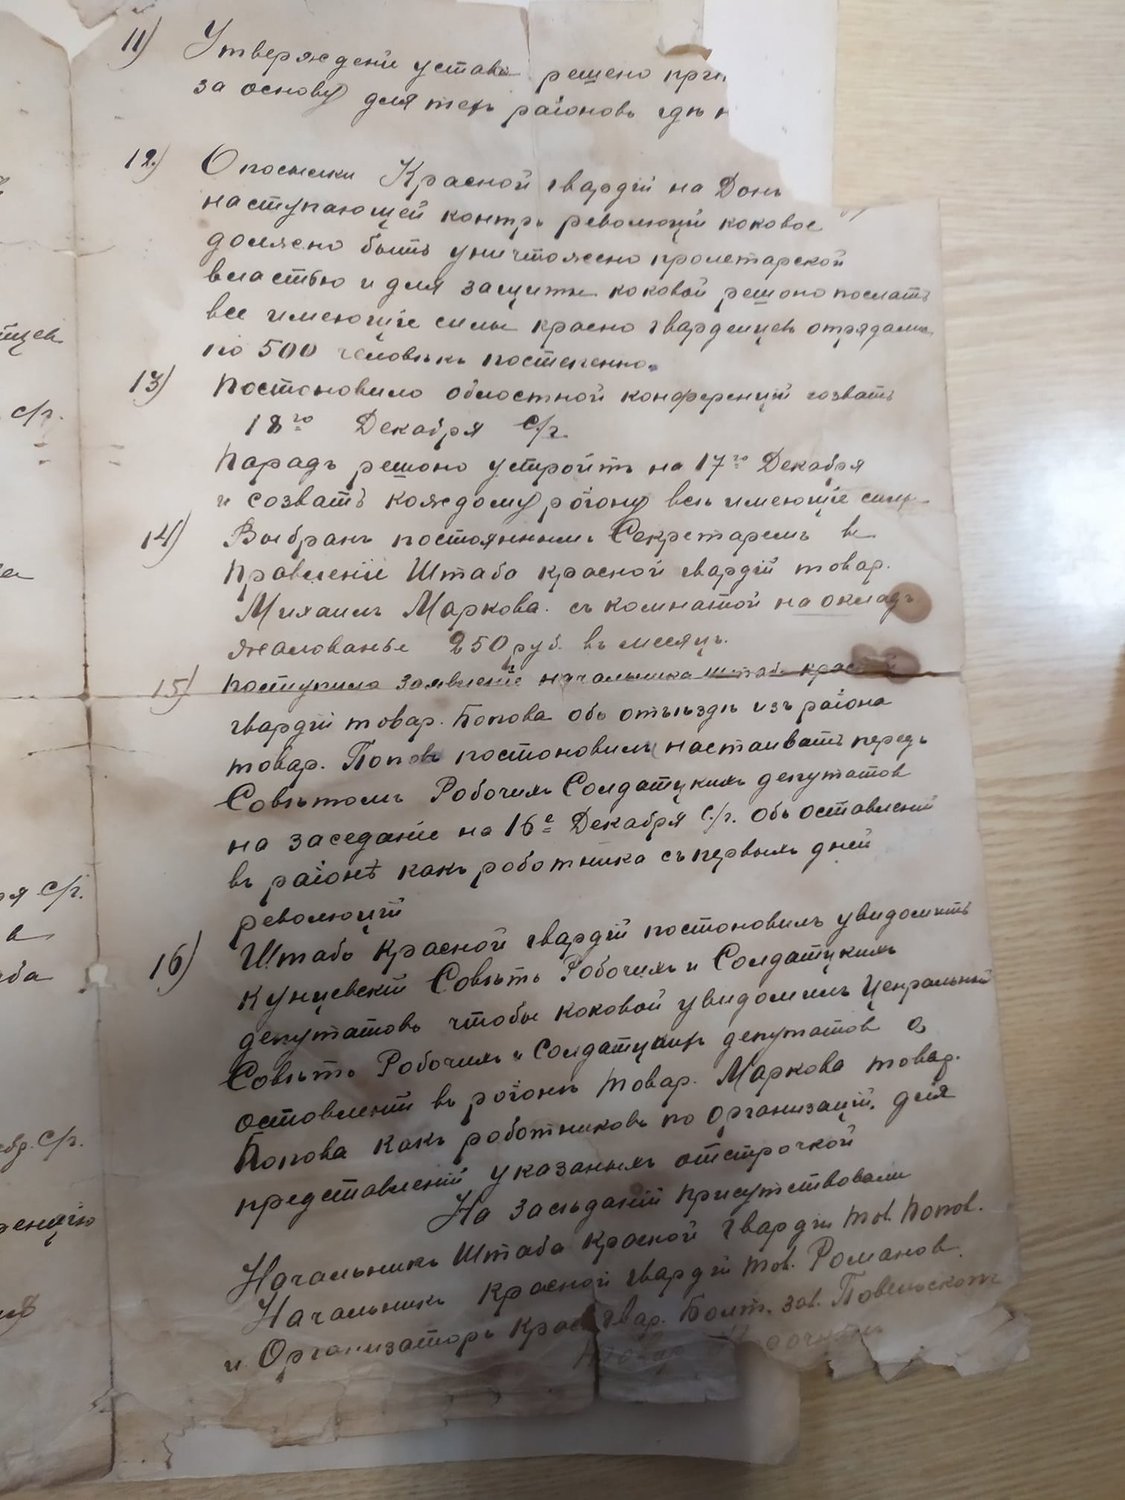 11) Утверждени устава решено прин
за основу для техъ раiоновъ гдъ н
12) О посылки Красной гвардiи на Донъ
наступающей контръ революцiи каковое
должно быть уничтожено пролетарской
властью и для защиты каковой решоно послать
все имеющiе силы красно гвардейцев отрядами
по 500 человъкъ постепенно.
13) Постановило областной конференцiи созвать
18го Декабря с/г.
Парадъ решоно устройть на 17го Декабря
и созвать каждому раiону всъ имеющiе силы
14) Выбранъ постоянным Секретаремъ в
Правленiе Штаба красной гвардiи товар.
Михаилъ Маркова. съ комнатой на окладъ
жалованье 250 руб. въ месяцъ.
15) Поступило заявленiе начальника штаба красной
гвардiй товар. Попова объ отъъздъ изъ раiона
товар. Поповъ постоновилъ настаивать передъ
Совътомъ Робочихъ Солдатцкихъ депутатов
на заседанiе на 16е Декабря с./г. объ оставленiй
въ раiонъ какъ роботника съ первыхъ дней
революцiй
16) Штабъ Красной гвардiй постоновилъ увидомить
Кунцевскiй Совътъ Робочихъ и Солдатцкихъ
депутатовъ чтобы каковой увидомилъ Ценральный
Совътъ Робочихъ и Солдатцкихъ депутатов о
оставленiй въ раiонъ товар. Маркова товар.
Попова какъ роботниковъ по организацiй. для
представленiй указаныхъ отстрочкой
На засъданiй присутствовали
Начальникъ Штаба Красной гвардiи тов. Попов.
Начальникъ Красной гвардiй тов. Романов.
и Организаторъ Крас. гвар. зав.
тцев
с/г.
ря с/г.
в
ба
бр. с/г.
ренцiю